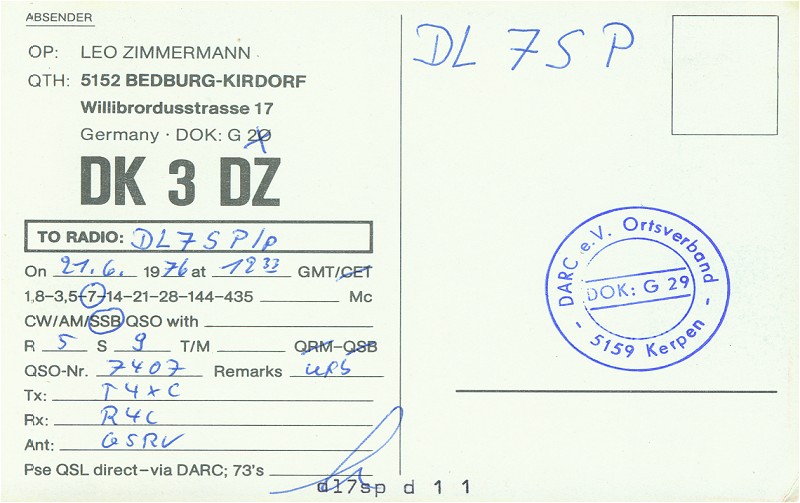 ABSENDER
OP: LEO ZIMMERMANN
QTH: 5152 BEDBURG-KIRDORF
Willibrordusstrasse 17
Germany · DOK: G 29
DK 3 DZ
TO RADIO: DL7SP/p
On 21.6. 1976 at 1233 GMT/CET
1,8–3,5–7–14–21–28–144–435 Mc
CW/AM/SSB QSO with
R 5 S 9 T/M QRM-QSB
QSO-Nr. 7407 Remarks
Tx: T4XC
Rx: R4C
Ant: G5RV
Pse QSL direct–via DARC; 73's
dl7sp d 1 1
DL 7 S P
DARC e.V. Ortsverband
DOK: G 29
- 5159 Kerpen -